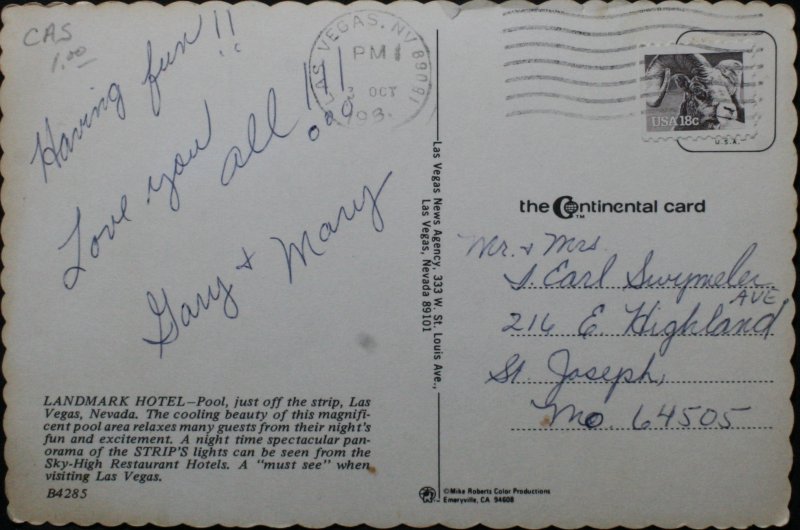 CAS
1.00
Having fun!!
Love you
all!!!
Gary & Mary
LANDMARK HOTEL—Pool, just off the strip, Las
Vegas, Nevada. The cooling beauty of this magnifi-
cent pool area relaxes many guests from their night's
fun and excitement. A night time spectacular pan-
orama of the STRIP'S lights can be seen from the
Sky-High Restaurant Hotels. A "must see" when
visiting Las Vegas.
B4285
LAS VEGAS, NV 89091
PM
3 OCT
198
Las Vegas News Agency, 333 W. St. Louis Ave.,
Las Vegas, Nevada 89101
©Mike Roberts Color Productions
Emeryville, CA 94608
USA 18c
U.S.A.
the Continental card
TM
Mr. & Mrs.
J. Earl Swymeler
216 E. Highland AVE
St. Joseph,
Mo. 64505